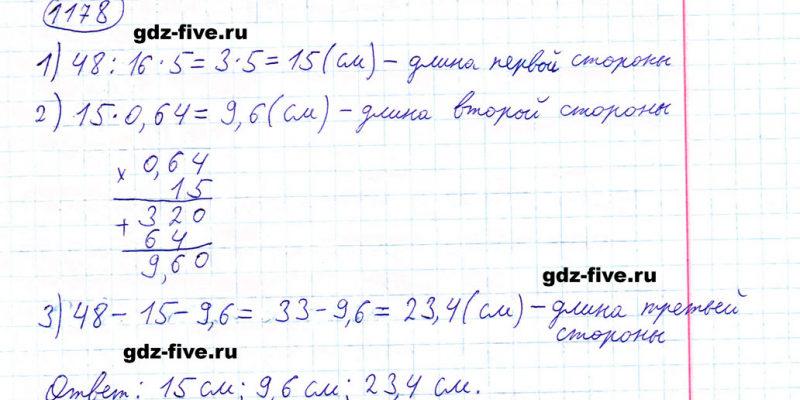 1178
gdz-five.ru
1) 48 : 16 · 5 = 3 · 5 = 15 (см) – длина первой стороны
2) 15 · 0,64 = 9,6 (см) – длина второй стороны
× 0,64
15
+ 320
64
9,60
gdz-five.ru
3) 48 – 15 – 9,6 = 33 – 9,6 = 23,4 (см) – длина третьей
стороны
gdz-five.ru
Ответ: 15 см; 9,6 см; 23,4 см.